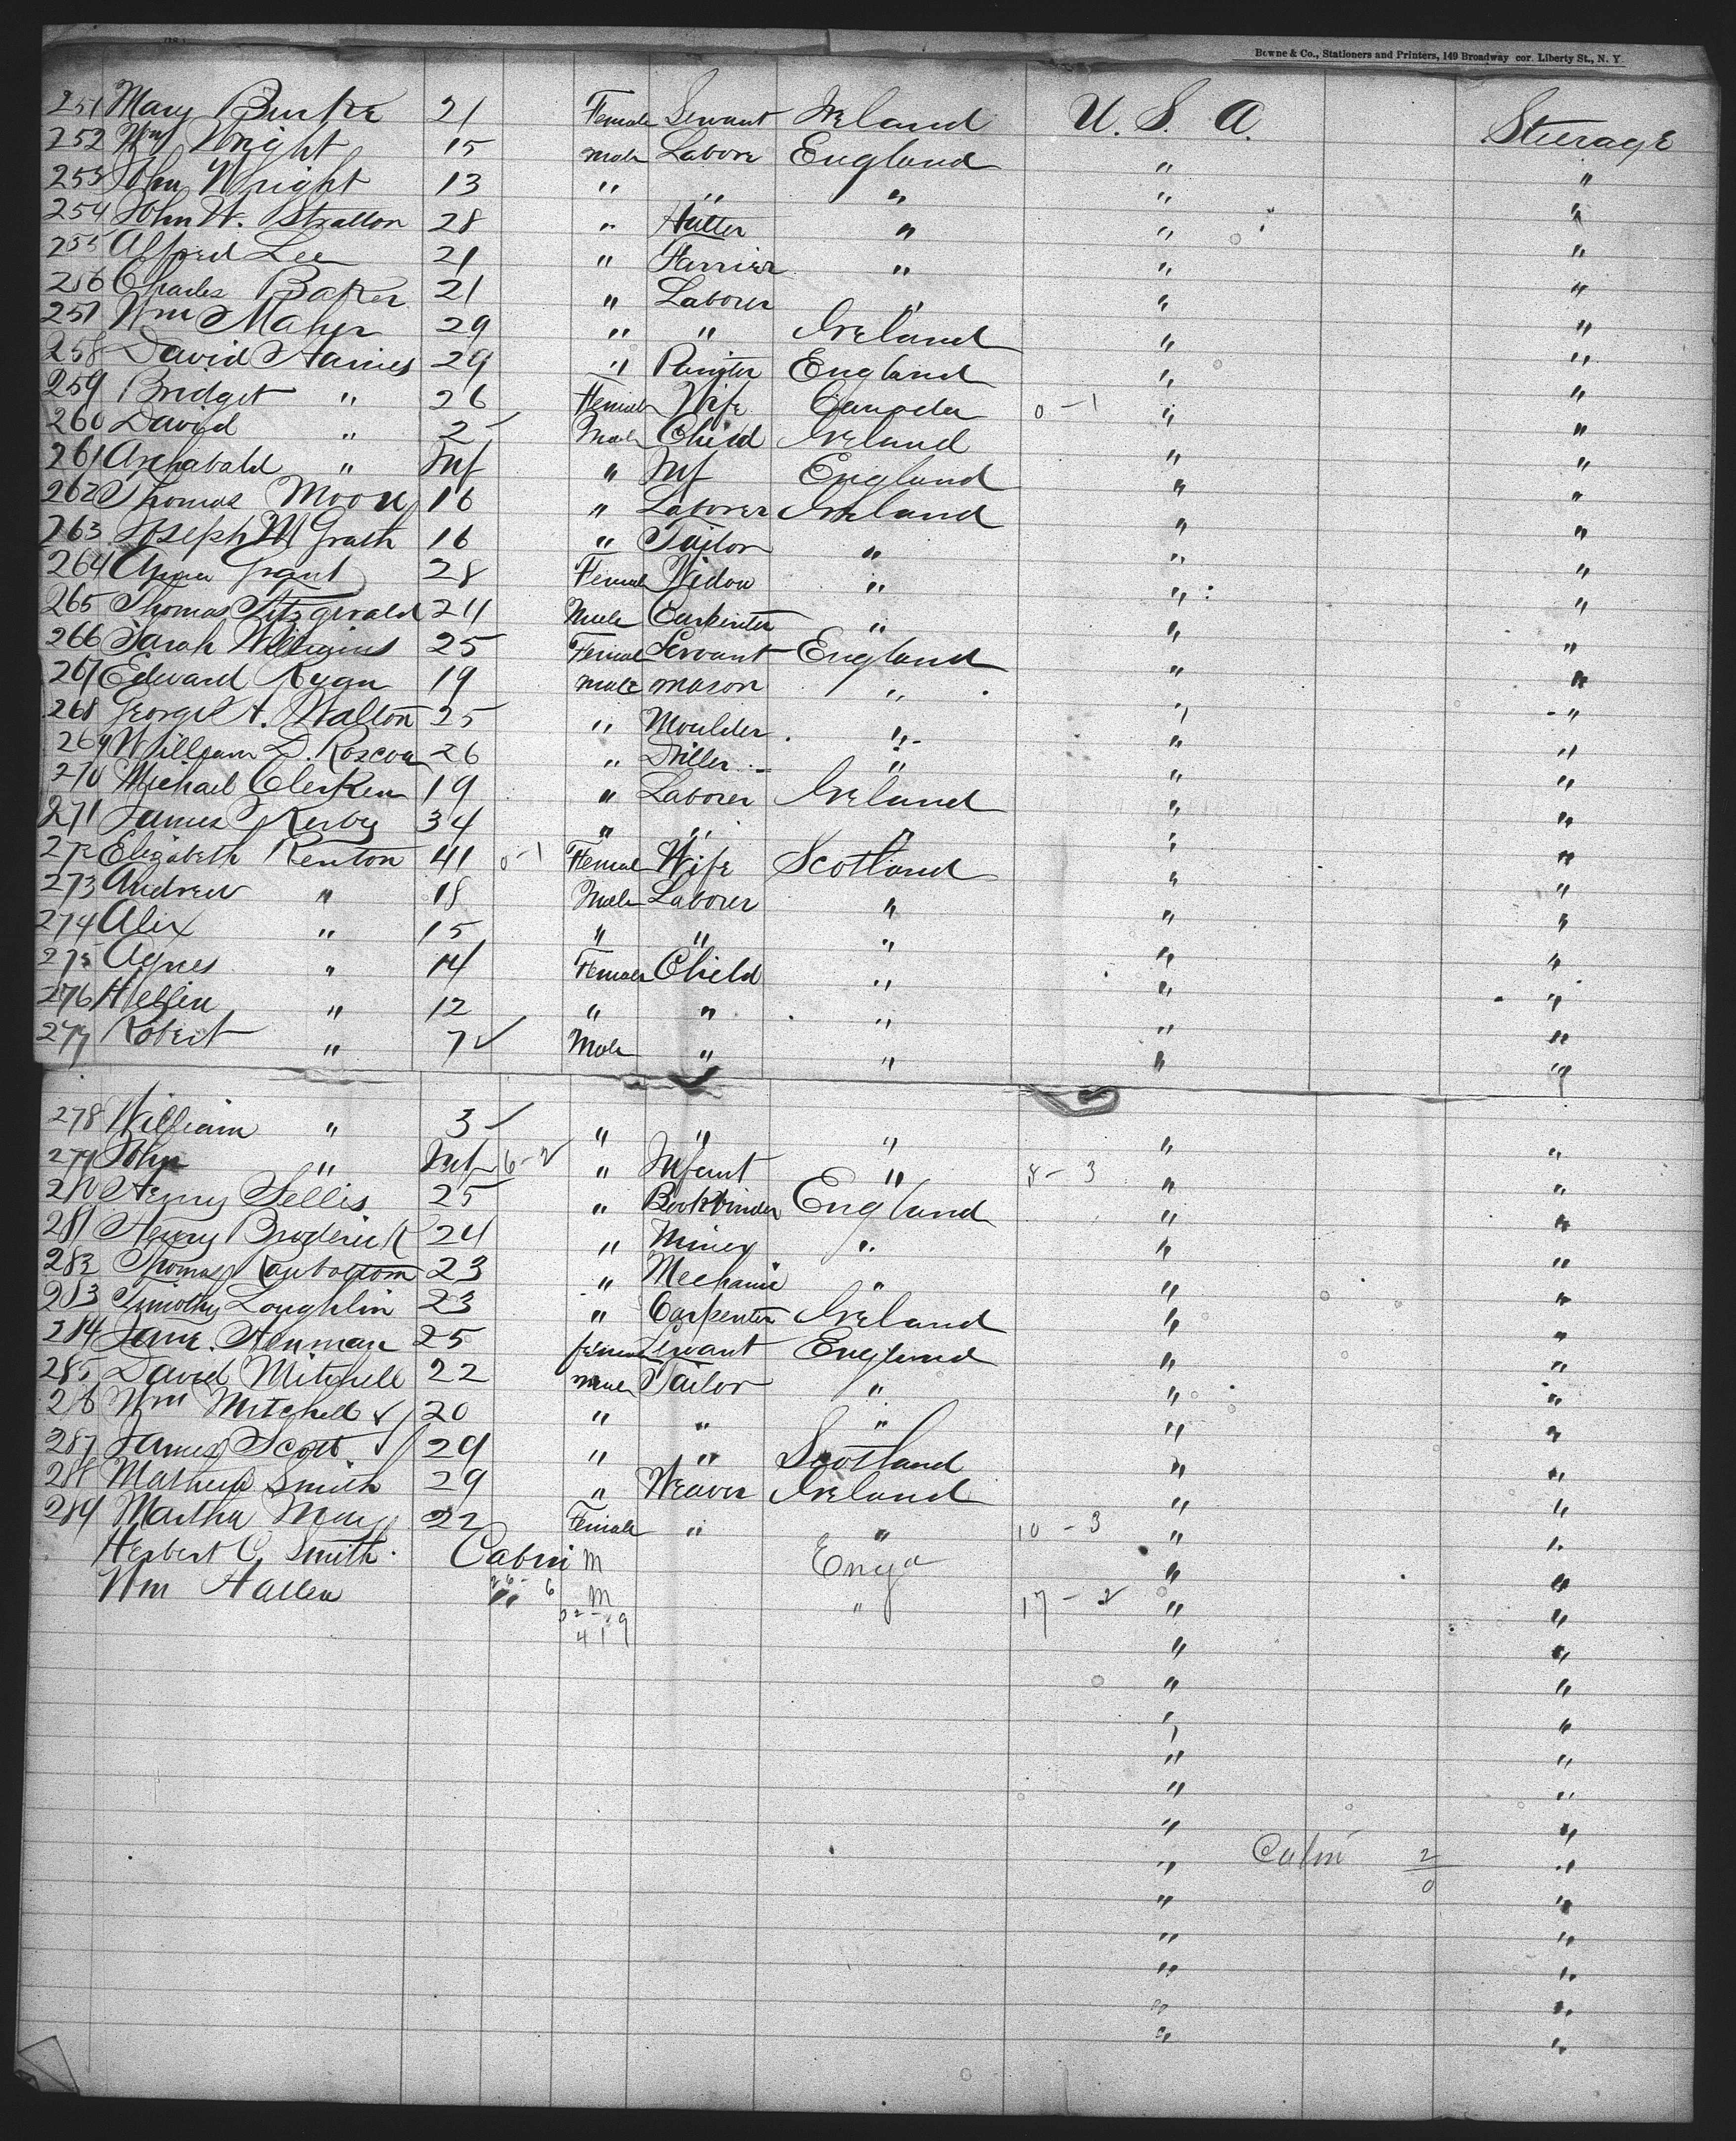 Bowne & Co., Stationers and Printers, 149 Broadway cor. Liberty St., N. Y.
251 Mary Burke 21 Female Servant Ireland U. S. A. Steerage
252 Wm Wright 15 Male Labore England " "
253 John Wright 13 " " " " "
254 John W. Stratton 28 " Hatter " " "
255 Alfred Lee 21 " Farrier " " "
256 Charles Baker 21 " Laborer " " "
257 Wm Maher 29 " " Ireland " "
258 David Harries 29 " England " "
259 Bridget " 26 Female Wife Canada 0-1 " "
260 David " 2 Male Child Ireland " "
261 Archabald " Inf " Inf England " "
262 Thomas Moore 16 " Laborer Ireland " "
263 Joseph McGrath 16 " Tailor " " "
264 Anna Grant 28 Female Widow " " "
265 Thomas Fitzgerald 24 Male Carpenter " " "
266 Sarah 25 Female Servant England " "
267 Edward Ryan 19 Male Mason " " "
268 George A. Walton 25 " Moulder " " "
269 William D. Roscoe 26 " " " "
270 Michael Clerken 19 " Laborer Ireland " "
271 James Kerby 34 " " " " "
272 Elizabeth Renton 41 0-1 Female Wife Scotland " "
273 Andrew " 18 Male Laborer " " "
274 Alex " 15 " " " " "
275 Agnes " 14 Female Child " " "
276 Hellen " 12 " " " " "
277 Robert " 7 ✓ Male " " " "
278 William " 3 ✓ " " " " "
279 John " Inf 6-2 " Infant " 8-3 " "
280 Henry Sellis 25 " Bookbinder England " "
281 Henry Broderick 24 " Miner " " "
282 Thomas 23 " Mechanic " " "
283 Timothy Loughlin 23 " Carpenter Ireland " "
284 Jane Henman 25 female Servant England " "
285 David Mitchell 22 male Tailor " " "
286 Wm Mitchell ✓ 20 " " " " "
287 James Scott ✓ 29 " " Scotland " "
288 Mathew Smith 29 " Weaver Ireland " "
289 Martha 22 Female " " 10-3 " "
Herbert C. Smith Cabin M Eng " "
Wm Hallen " 26-6 M " 17-2 " "
419 " "
" "
" "
" "
" "
" "
Cabin 2
0
" "
" "
" "
" "
" "